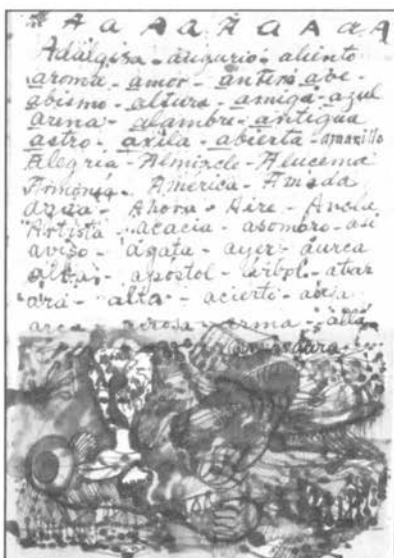 A a A a A a A a A
Adalgisa - augurio - aliento
aroma - amor - antena ave -
abismo - altura - amiga - azul
arena - alambre - antigua
astro - axila - abierta - amarillo
Alegria - Almizcle - Alucema
Armonía - America - Amada
agua - Ahora - Aire - Ancla
Artista - acacia - asombro - así
aviso - ágata - ayer - áurea
apostol - árbol - atar
ara - alta - acierto -
arca - arma - allá